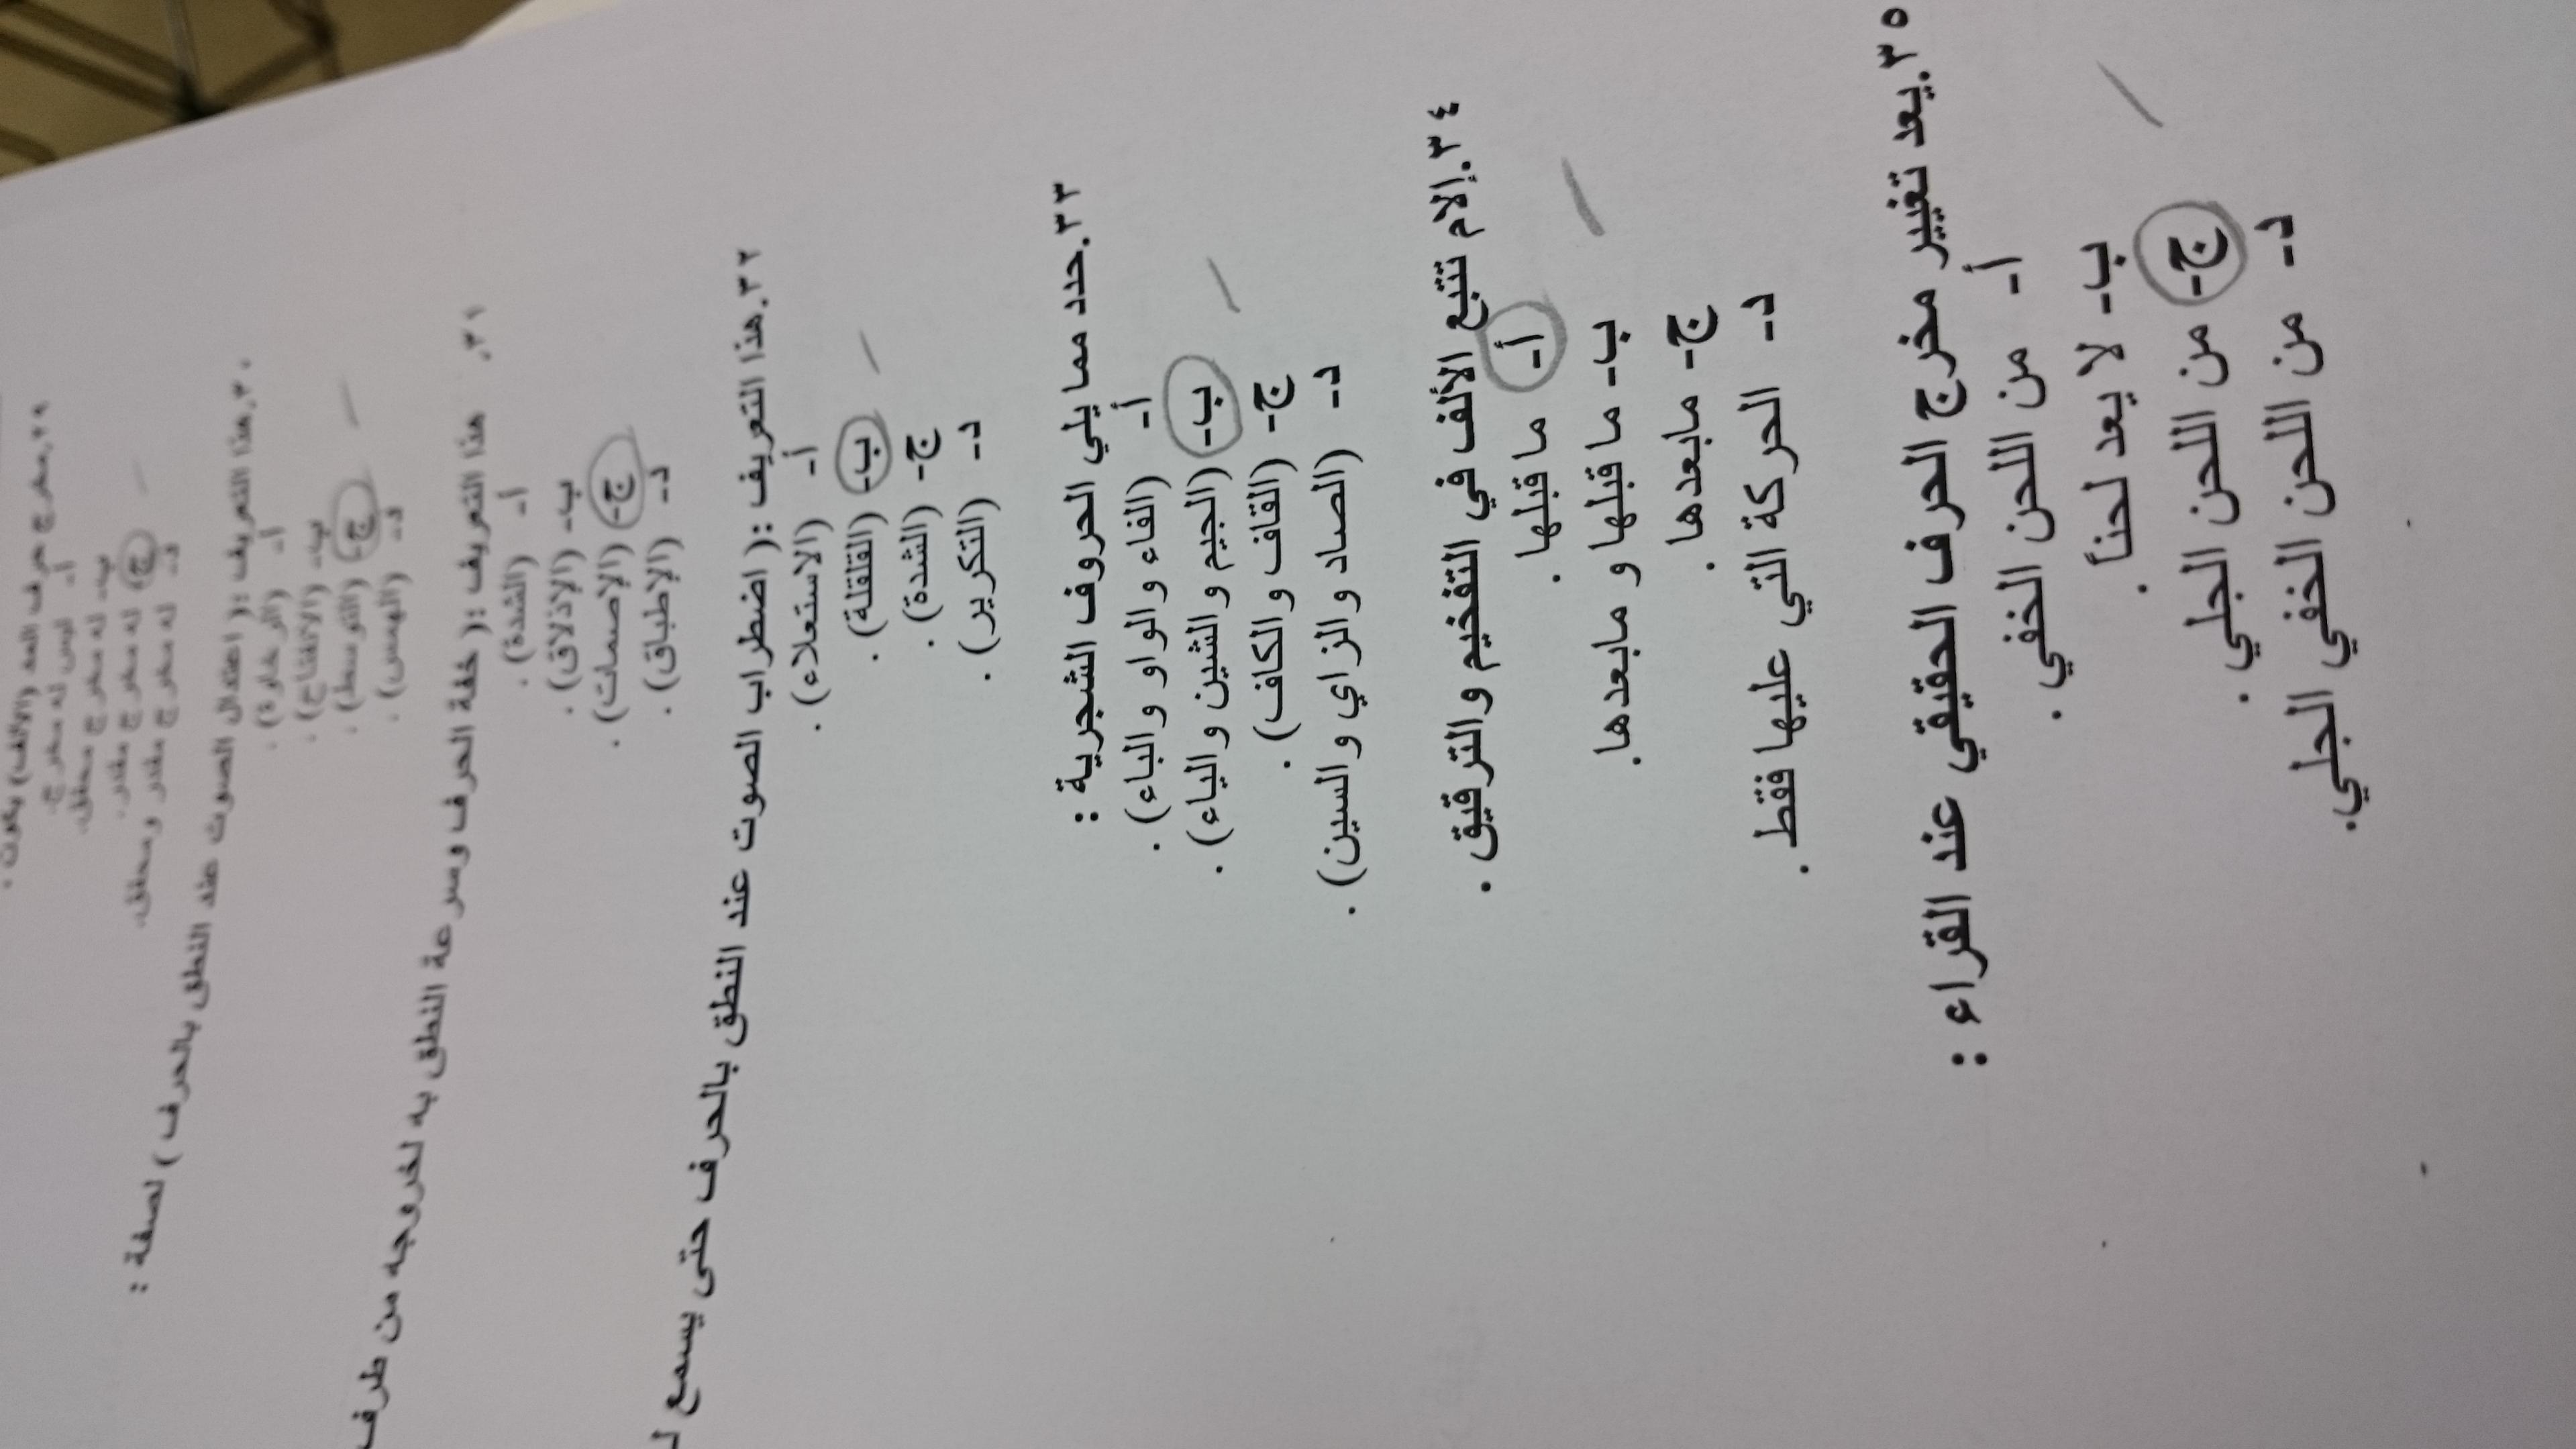 ٢٩. مخرج حرف المد (الألف) يكون .
أ- ليس له مخرج.
ب- له مخرج محقق.
ج) له مخرج مقدر.
د- له مخرج مقدر ومحقق.
٣٠. هذا التعريف :( اعتدال الصوت عند النطق بالحرف ) لصفة :
أ- (الرخاوة) .
ب- (الانفتاح) .
ج- (التوسط) .
د- (الهمس) .
٣١. هذا التعريف :( خفة الحرف وسرعة النطق به لخروجه من طرف
أ- (الشدة) .
ب- (الإذلاق) .
ج- (الإصمات) .
د- (الإطباق) .
٣٢. هذا التعريف :( اضطراب الصوت عند النطق بالحرف حتى يسمع
أ- (الاستعلاء) .
ب- (القلقلة) .
ج- (الشدة) .
د- (التكرير) .
٣٣. حدد مما يلي الحروف الشجرية :
أ- (الفاء و الواو و الباء) .
ب- (الجيم و الشين و الياء) .
ج- (القاف و الكاف) .
د- (الصاد و الزاي و السين) .
٣٤. إلام تتبع الألف في التفخيم والترقيق .
أ- ما قبلها .
ب- ما قبلها و مابعدها.
ج- مابعدها .
د- الحركة التي عليها فقط .
٣٥. يعد تغيير مخرج الحرف الحقيقي عند القراء :
أ- من اللحن الخفي .
ب- لا يعد لحناً .
ج- من اللحن الجلي .
د- من اللحن الخفي الجلي.